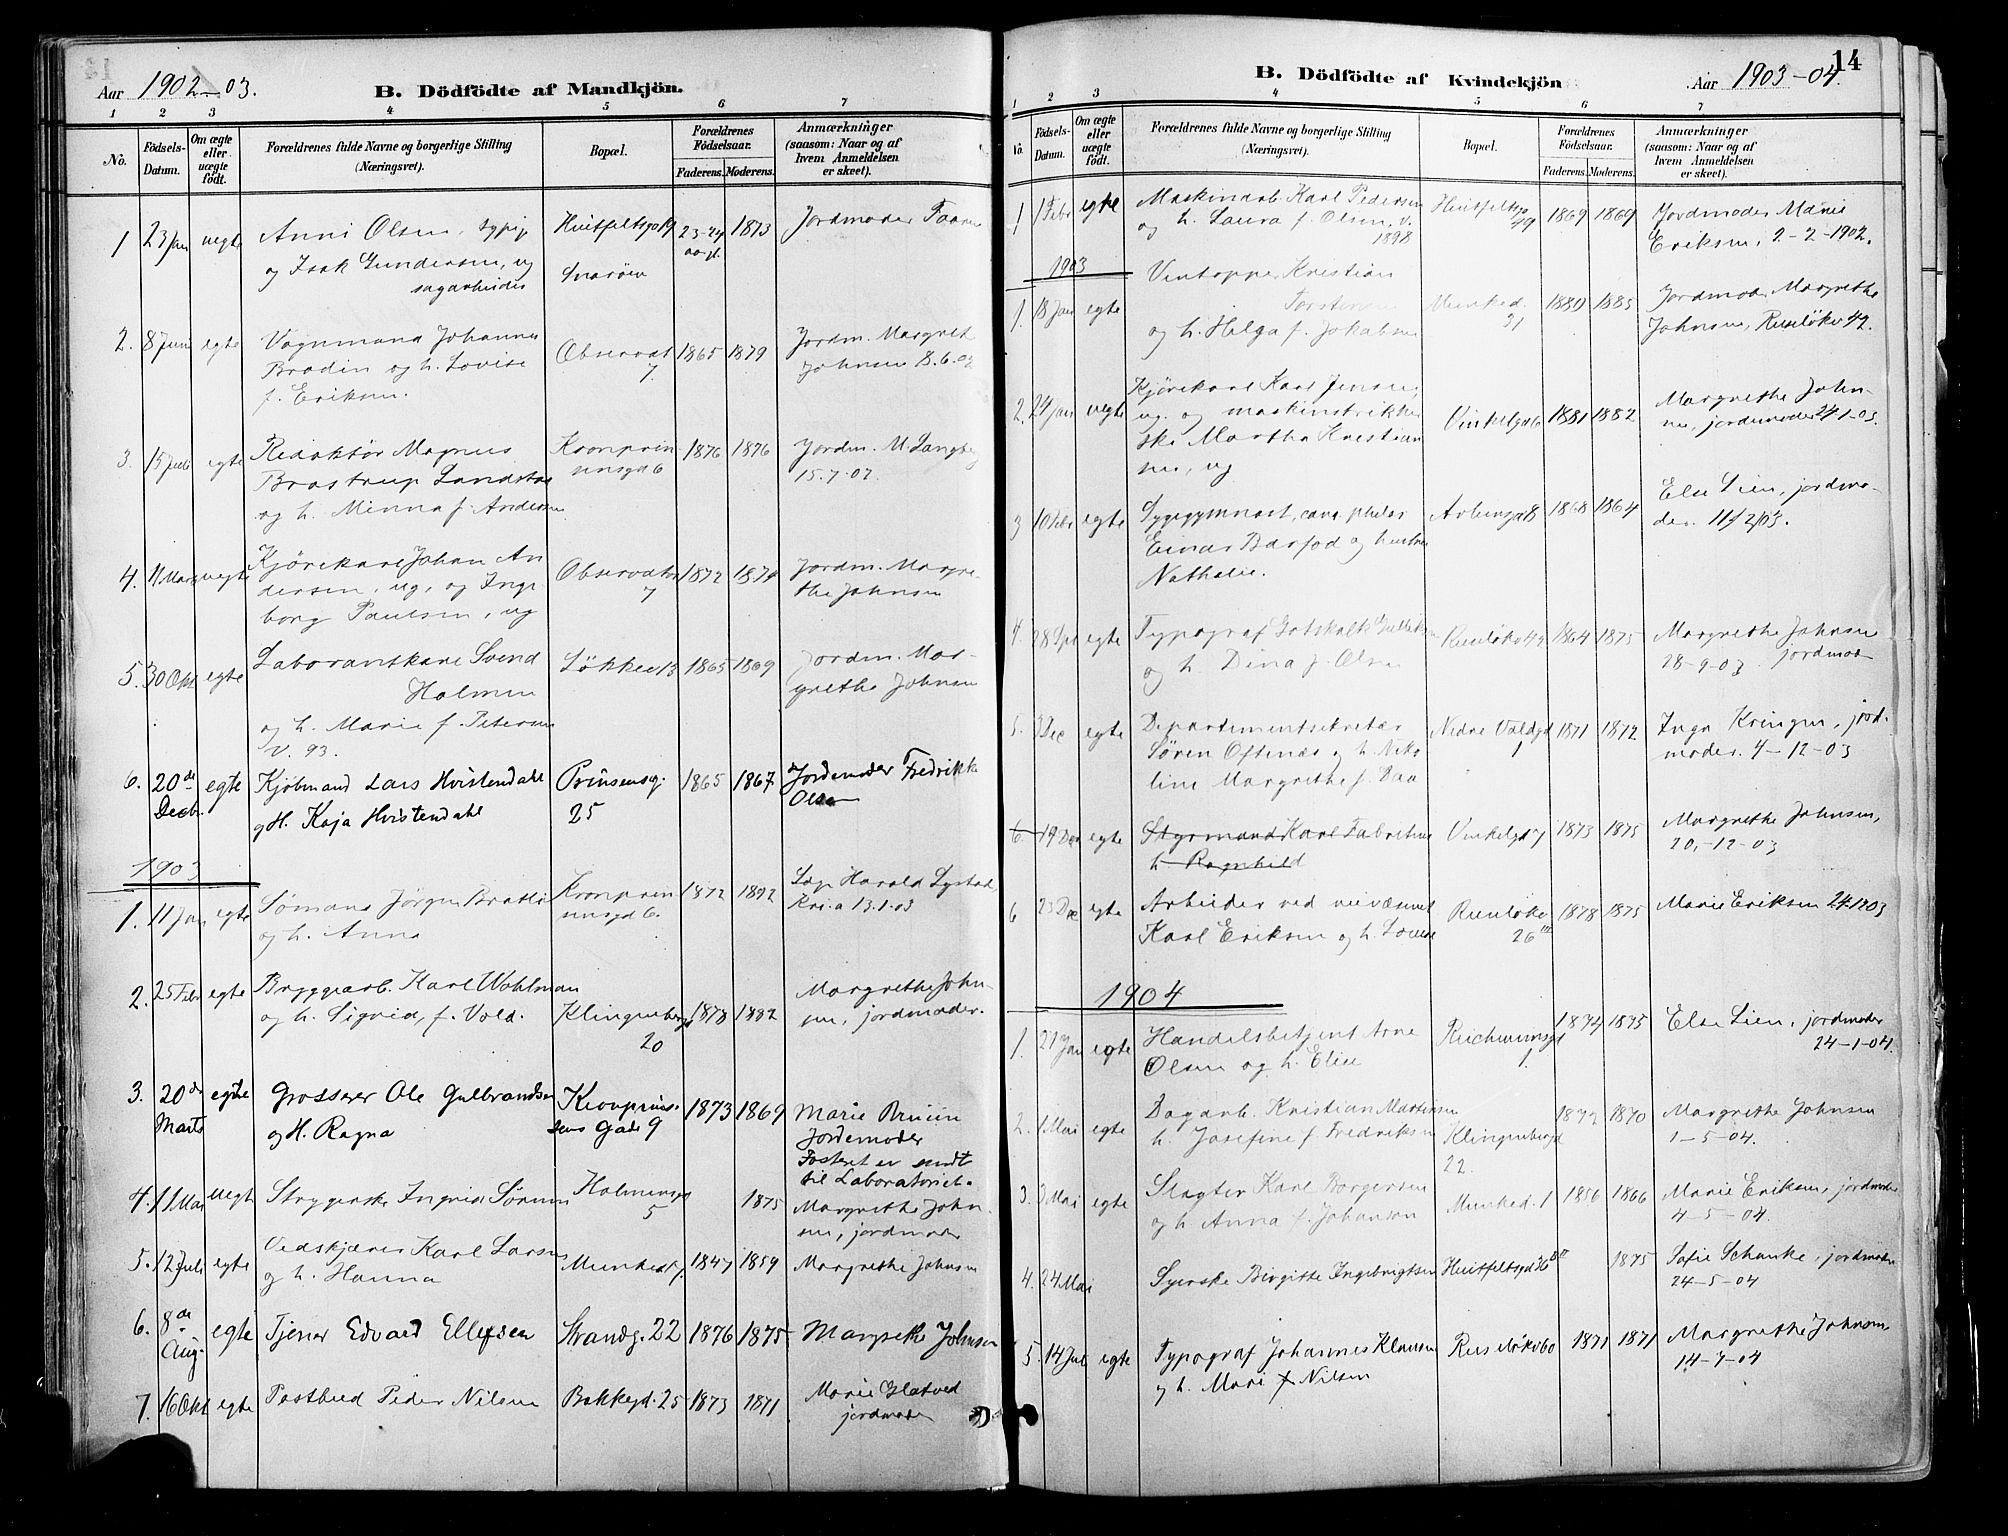 Aar 1902-03.
B. Dödfödte af Mandkjön.
1 2 3 4 5 6 7
No.
Födsels-Datum.
Om ægte eller uægte födt.
Forældrenes fulde Navne og borgerlige Stilling (Næringsvei).
Bopæl.
Forældrenes Födselsaar.
Faderens. Moderens.
Anmærkninger (saasom: Naar og af hvem Anmeldelsen er skeet).
1 23 Jan uegte Anni Olsen, sypig Huitfeltsgd 19 23-24 1873 Jordmoder
og Isak Gundersen, ug Snarøen
sagarbeider
2. 8 Juni egte Vognmand Johannes Observat 1865 1879 Jordm. Margret
Brodin og h. Lovise 7. Johnsen 8.6.02
f. Eriksen.
3. 15 Juli egte Redaktør Magnus Kronprin 1876 1876 Jordm. M. Langberg
Brostrup Landstad sensgd 6 15.7.02.
og h. Minna f. Andersen
4. uegte Kjørekarl Johan An Observator 1872 Jordm. Margre-
dersen, ug, og Inge 7 the Johnsen
borg Paulsen, ug
5. 30 Okt egte Laborantkarl Svend Løkkev 13 1865 1869 Jordm. Mar-
Holmen grethe Johnsen
og h. Marie f. Petersen
V. 93.
6. 20de Decbr. egte Kjøbmand Lars Hvistendahl Prinsensg 1865 1867 Jordemoder Fredrikke
og H. Kaja Hvistendahl 25 Olsen
1903
1. 11 Jan egte Sømand Jørgen Bratli Kronprin 1872 Læge Harald Lystad
og h. Anna sensgd 6. Kr.a 13.1.03
2. 25 Febr egte Bryggearb. Karl Wohlman Margrethe John-
og h. Sigrid, f. Vold. Klingenbergd 1878 1882 sen, jordmoder.
20
3. 20de Marts egte Grosserer Ole Gulbrandsen Kronprins- 1873 1869 Marie Bruun
og H. Ragna sens Gade 9 Jordemoder
Fosteret er sendt
til Laboratoriet.
4. 11 Mai uegte Strygerske Ingrid Sørum Holmensgd 1875 Margrethe John-
5 sen, jordmoder
5. 12 Juli egte Vedskjærer Karl Larsen Munkedv 1847 1859 Margrethe Johnsen
og h. Hanna
6. 8de Aug. egte Tjener Edvard Ellefsen Strandg. 22 1876 1875 Margrethe Johnsen
7. 16 Okt egte Postbud Peder Nilsen Bakkegd. 25 1873 1871 Marie Glatved
jordmoder
14
B. Dödfödte af Kvindekjön
Aar 1903-04.
1 2 3 4 5 6 7
No.
Födsels-Datum.
Om ægte eller uægte födt.
Forældrenes fulde Navne og borgerlige Stilling (Næringsvei).
Bopæl.
Forældrenes Födselsaar.
Faderens. Moderens.
Anmærkninger (saasom: Naar og af hvem Anmeldelsen er skeet).
1 1 Febr egte Maskinarb Karl Pedersen Huitfeltsgd 1869 1869 Jordmoder Marie
og h. Laura f. Olsen, v. 49 Eriksen, 2-2-1902.
1898
1903
1. 18 Jan egte Vintapper Kristian Munked. 1880 1885 Jordmoder Margrethe
Torstensen 31 Johnsen, Ruseløkv 42.
og h. Helga f. Jakobsen
2. 24 Jan uegte Kjørekarl Karl Jensen, Vinkelgd 6 1881 1882 Margrethe John-
ug. og maskinstrikker sen, jordmoder 24-1-03.
ske Martha Kristian
sen, ug
3 10 Febr egte Sygegymnast, cand. philos Arbinsgd 8 1868 1864 Else Lien, jordmo-
Einar Barfod og hustru der. 11/2/03.
Nathalie.
4. 28 Spt egte Typograf Gotskalk Gulliksen Ruseløkv 42 1864 1875 Margrethe Johnsen
og h. Dina f. Olsen 28-9-03 jordmoder
5. 3 Dec egte Departementsekretær Nedre Voldgd 1871 1872 Inga Kringen, jord-
Søren Oftenæs og h. Niko 1 moder. 4-12-03
line Margrethe f. Daa
6. 19 Dec egte Styrmand Karl Fabritius Vinkelgd 7 1873 1875 Margrethe Johnsen,
h. Ragnhild 20.-12-03
6 23 Dec egte Arbeider ved veivæsenet Ruseløkv 1878 1875 Marie Eriksen 24.12 03
Karl Eriksen og h. Lovise 26 III
1904
1. 21 Jan egte Handelsbetjent Arne Reichweinsgd 1874 1875 Else Lien, jordmoder
Olsen og h. Elise 1. 24-1-04.
2. 1 Mai egte Dagarb. Kristian Martinsen Klingenbergd 1872 1870 Margrethe Johnsen
h. Josefine f. Fredriksen 22. 1-5-04.
3. 3 Mai egte Slagter Karl Borgersen Munked. 1 1856 1866 Marie Eriksen, jordmoder
og h. Anna f. Johanson 4-5-04.
4. 24 Mai Syerske Birgitte Ingebrigtsen Huitfeltsgd 36 B II 1875 Sofie Schanke, jordmoder
24-5-04
5. 14 Juli egte Typograf Johannes Klausen Ruseløkv 60 1871 1871 Margrethe Johnsen.
og h. Mari f Nilsen 14-7-04